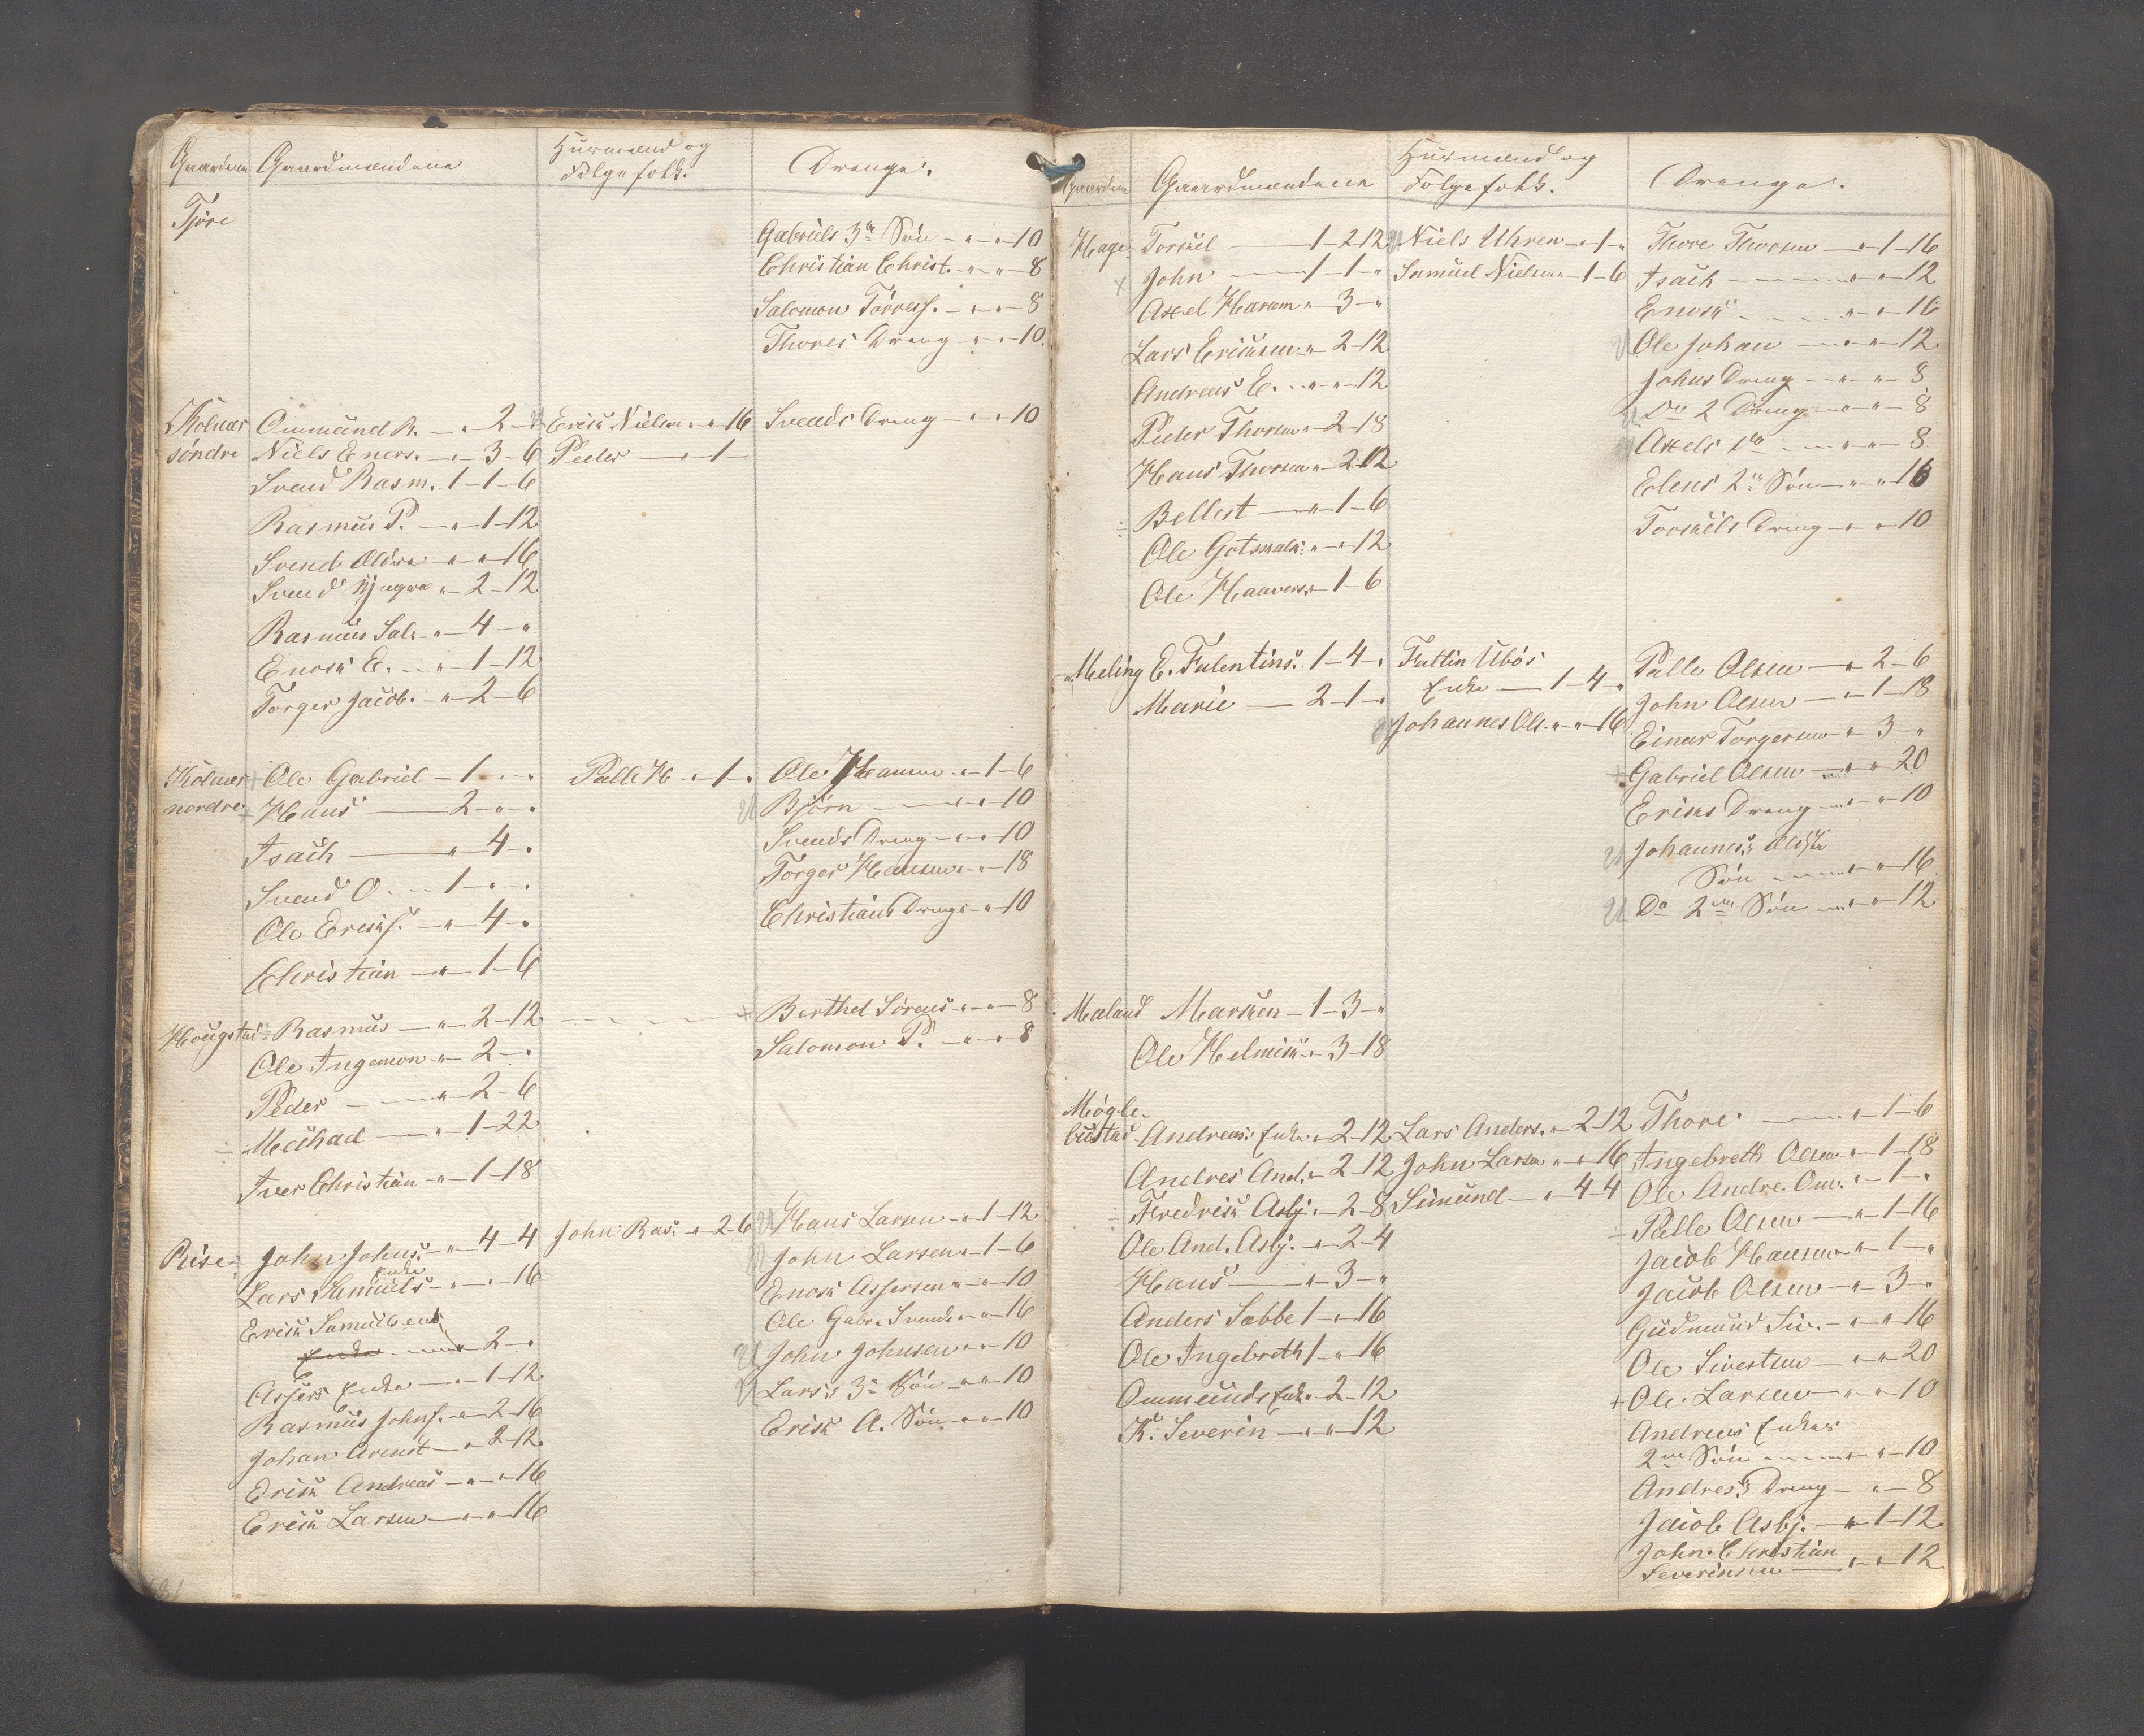 Gaardene Gaardmændene Huusmænd og Følgefolk. Drenge.
Tjøre
Gabriels 3die Søn - " - " - 10
Christian Christ. - " - " - 8
Salomon Tørress. - " - " - 8
Thores Dreng - " - " - 10
Kolnæs søndre
Ommund R. - " - 2 - "
Niels Eners. - " - 3 - 6
Svend Rasm. 1 - 1 - 6
Rasmus P. - " - 1 - 12
Svend Ældre " - " - 16
Svend Yngre " - 2 - 12
Rasmus Sal. - " - 4 - "
Enok E. - " - 1 - 12
Torger Jacob. - " - 2 - 6
U Erik Nielsen " - " 16
Peder - " - 1 -
Svends Dreng - " - " 10
Kolnæs nordre
+ Ole Gabriel - 1 - " - "
÷ Hans - 2 - " - "
Isach - " - 4 - "
Svend O. - 1 - " - "
Ole Eriks. - " - 4 - "
Christian - " - 1 - 6
Palle H - " - 1 - "
Ole Hansen - " - 1 - 6
U Bjørn - " - " 10
Svends Dreng - " - " 10
Torger Hansen " - " - 18
Christians Dreng " - " - 10
Hougstad
Rasmus - " - 2 - 12
Ole Ingemon " - 2 - "
Peder - " - 2 - 6
÷ Michael - " - 1 - 22
Iver Christian - " - 1 - 18
+ Berthel Sørens - " - " - 8
Salomon P. - " - " 8
Risøe
John Johns. - " - 4 - 4
Lars Samuels Enke - " - " 16
Erik Samuelsens
Enke - " 2 - "
Assers Enke - " - 1 - 12
Rasmus Johns. - " - 2 - 16
Johan Arent - " 2 - 12
Erik Andreas - " - " 16
Erik Larsen - " - " - 16
John Ras. - " - 2 - 6
U Hans Larsen - " - 1 - 12
U John Larsen " - 1 - 6
Enok Assersen " - " - 10
Ole Gabr. Svends. " - " - 16
U John Johnsen " - " - 10
U Lars's 3die Søn - " - " 10
Erik A. Søn - " - " - 10
Gaardene Gaardmændene Huusmænd og Følgefolk. Drenge.
Hage
Torkel - 1 - 2 - 12
x John - 1 - 1 - "
Axel Haram " - 3 - "
Lars Eriksen " - 2 - 12
Andreas E. - " - " - 12
Peder Thorsen " - 2 - 18
Hans Thorsen " - 2 - 12
÷ Bellest - " - 1 - 6
Ole Gotskalk. " - " - 12
Ole Haavers. " - 1 - 6
U Niels Uhren - " - 1 - "
Samuel Nielsen " - 1 - 6
Thore Thorsen - " - 1 - 16
Isach - " - " 12
Enok - " - " 16
U Ole Johan - " - " - 12
Johns Dreng - " - " - 8
U Do 2 Dreng - " - " - 8
U Axels do - " - " - 8
Elens 2den Søn - " - " 16
Torkels Dreng - " - " 10
Meling
E. Falentins. 1 - 4 - "
Marie - 2 - 1 - "
Faltin Ubøs
Enke - 1 - 4 - "
U Johannes Ols. " - " 16
Palle Olsen - " - 2 - 6
John Olsen - " - 1 - 18
Einar Torgersen " - 3 - "
+ Gabriel Olsen - " - " 20
Eriks Dreng - " - " 10
U Johannes's ældste
Søn - " - " 16
U Do 2den Søn - " - " - 12
Mæland
Marken - 1 - 3 - "
Ole Helmik " - 3 - 18
Møgle-
bustad
Andreas's Enke " 2 - 12
Andres And. " - 2 - 12
÷ Fredrik Asbj. " - 2 - 8
Ole And. Asbj. - " - 2 - 4
Hans - " - 3 - "
Anders Sæbbe 1 - " - 16
Ole Ingebreth 1 - " - 16
Ommunds Enke " - 2 - 12
K. Severin - " - " - 12
Lars Anders. " - 2 - 12
John Larsen " - " - 16
Simund - " - 4 - 4
Thore - " - 1 - 6
Ingebreth Olsen " - 1 - 18
Ole Andr. Om. " - 1 - "
÷ Palle Olsen - " - 1 - 16
Jacob Hansen " - 1 - "
Jacob Olsen - " - 3 - "
Gudmund Siv. - " - " - 16
Ole Sivertsen - " - " 20
+ Ole Larsen - " - " 10
Andreas Enkes
2den Søn - " - " 10
Andres's Dreng - " - 8
Jacob Asbj. - " - 1 - 12
John Christian
Severinsen - " - " - 12